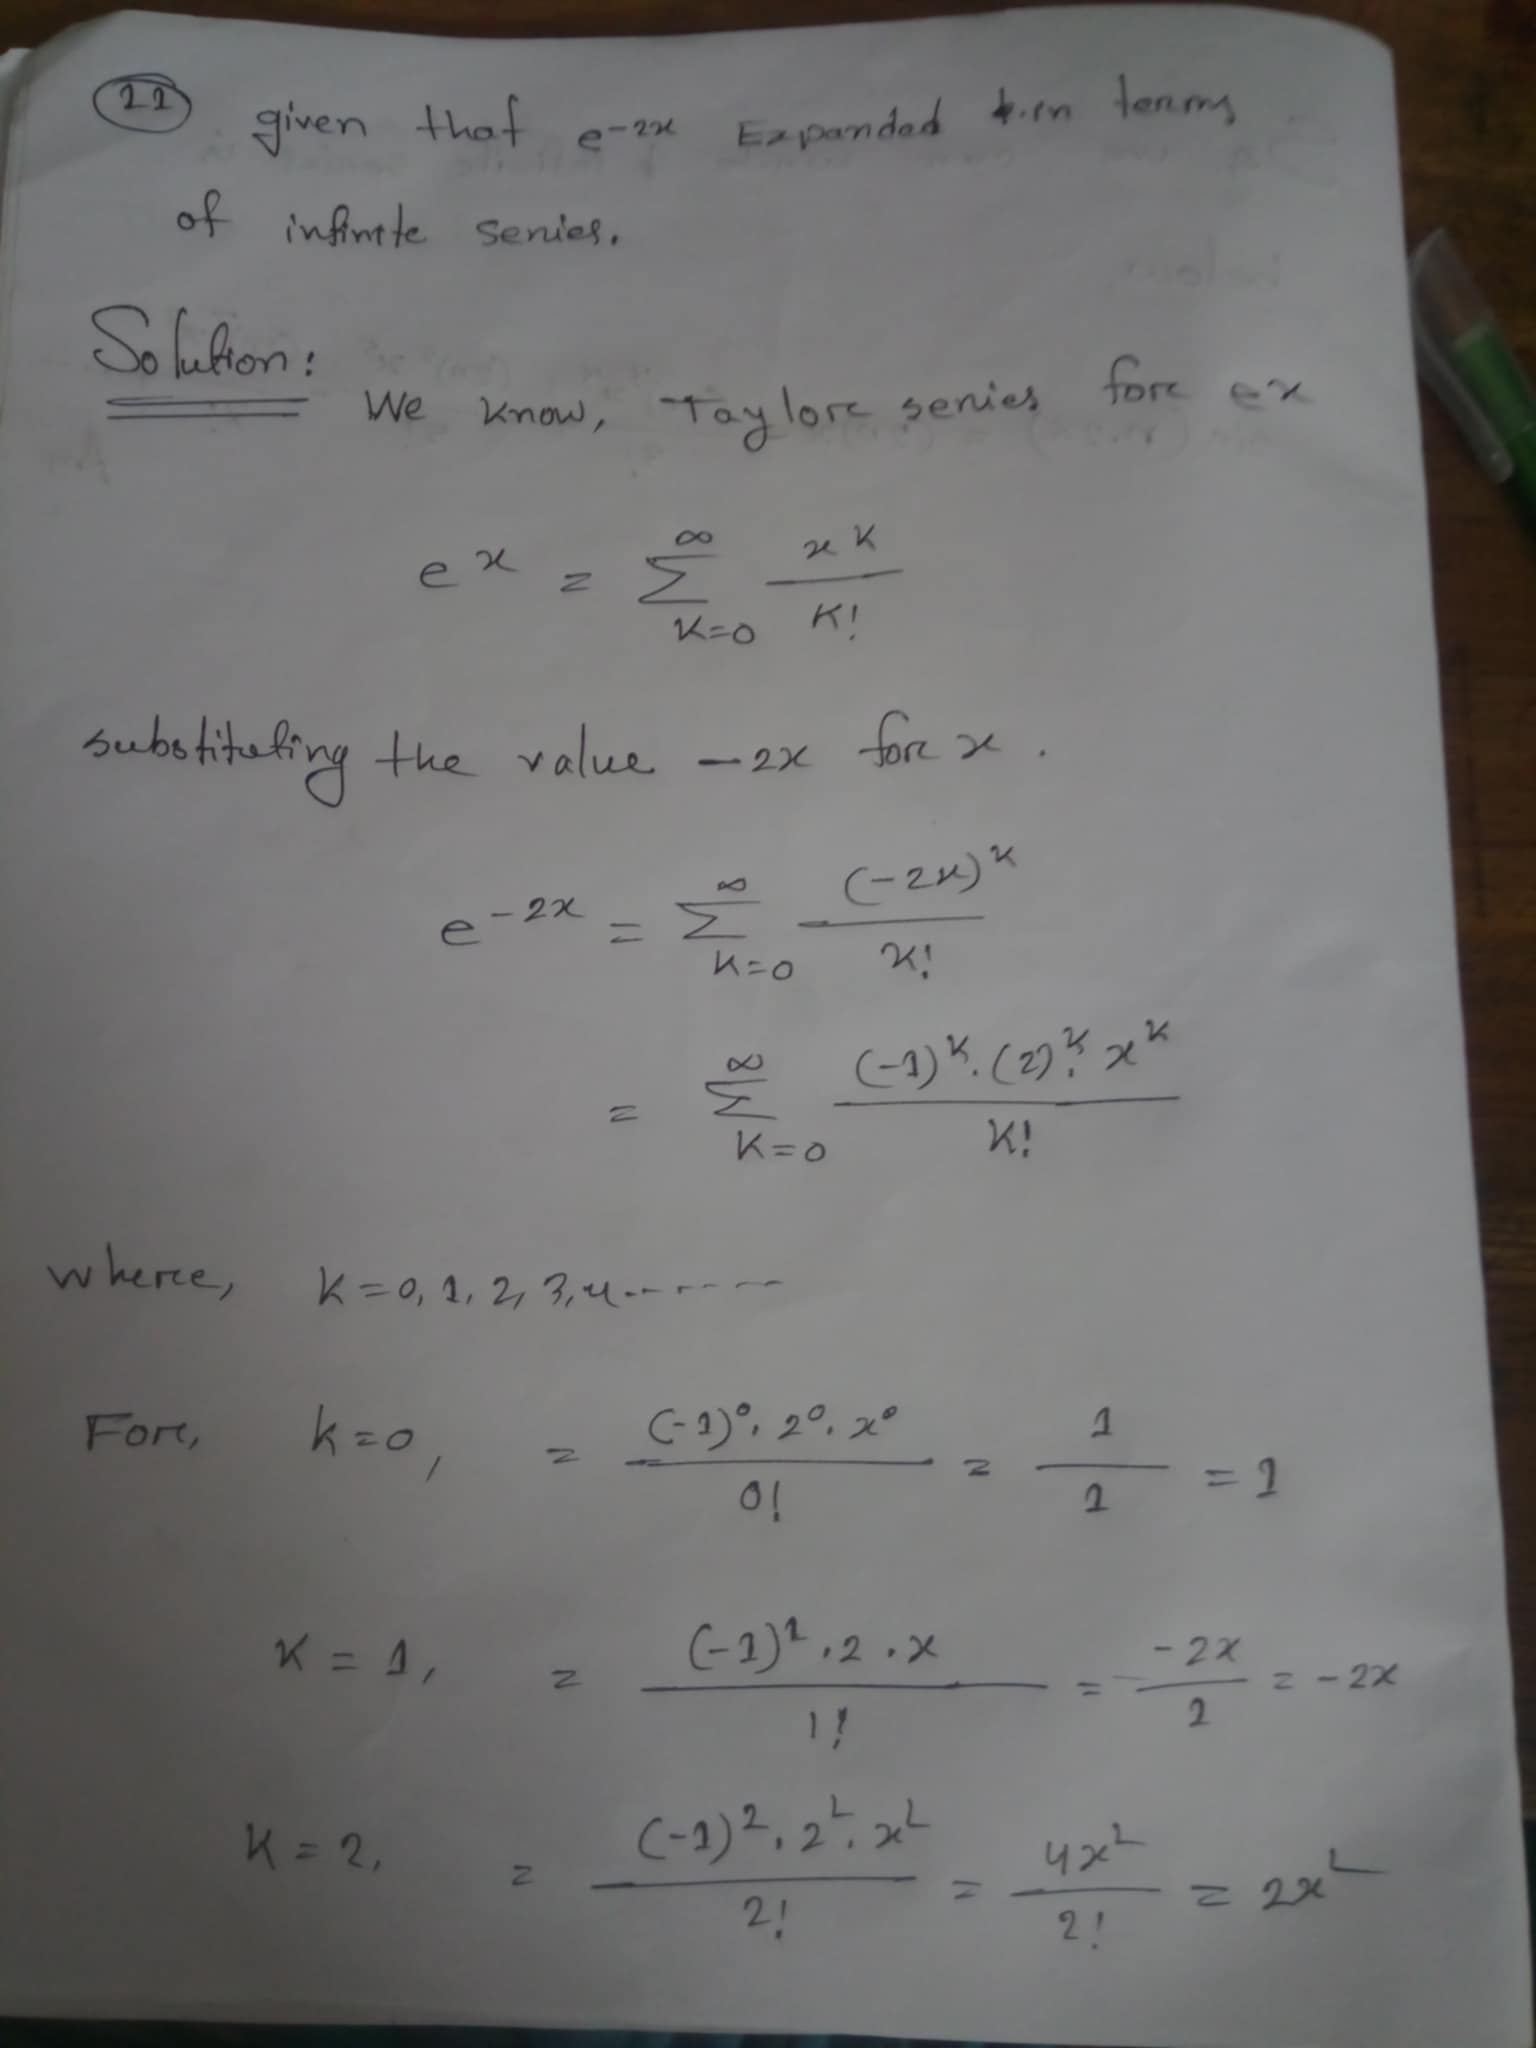 22 given that e-2x Expanded in terms
of infinite series.
Solution:
We know, Taylore series fore ex
e^x = ∑_{K=0}^{∞} x^K / K!
substituting the value -2x fore x.
e^{-2x} = ∑_{K=0}^{∞} (-2x)^K / K!
= ∑_{K=0}^{∞} (-1)^K . (2)^K . x^K / K!
where, K=0, 1, 2, 3, 4........
Fore, k=0, = (-1)^0 . 2^0 . x^0 / 0! = 1/1 = 1
K = 1, = (-1)^1 . 2 . x / 1! = -2x/1 = -2x
K = 2, = (-1)^2 . 2^2 . x^2 / 2! = 4x^2 / 2! = 2x^2